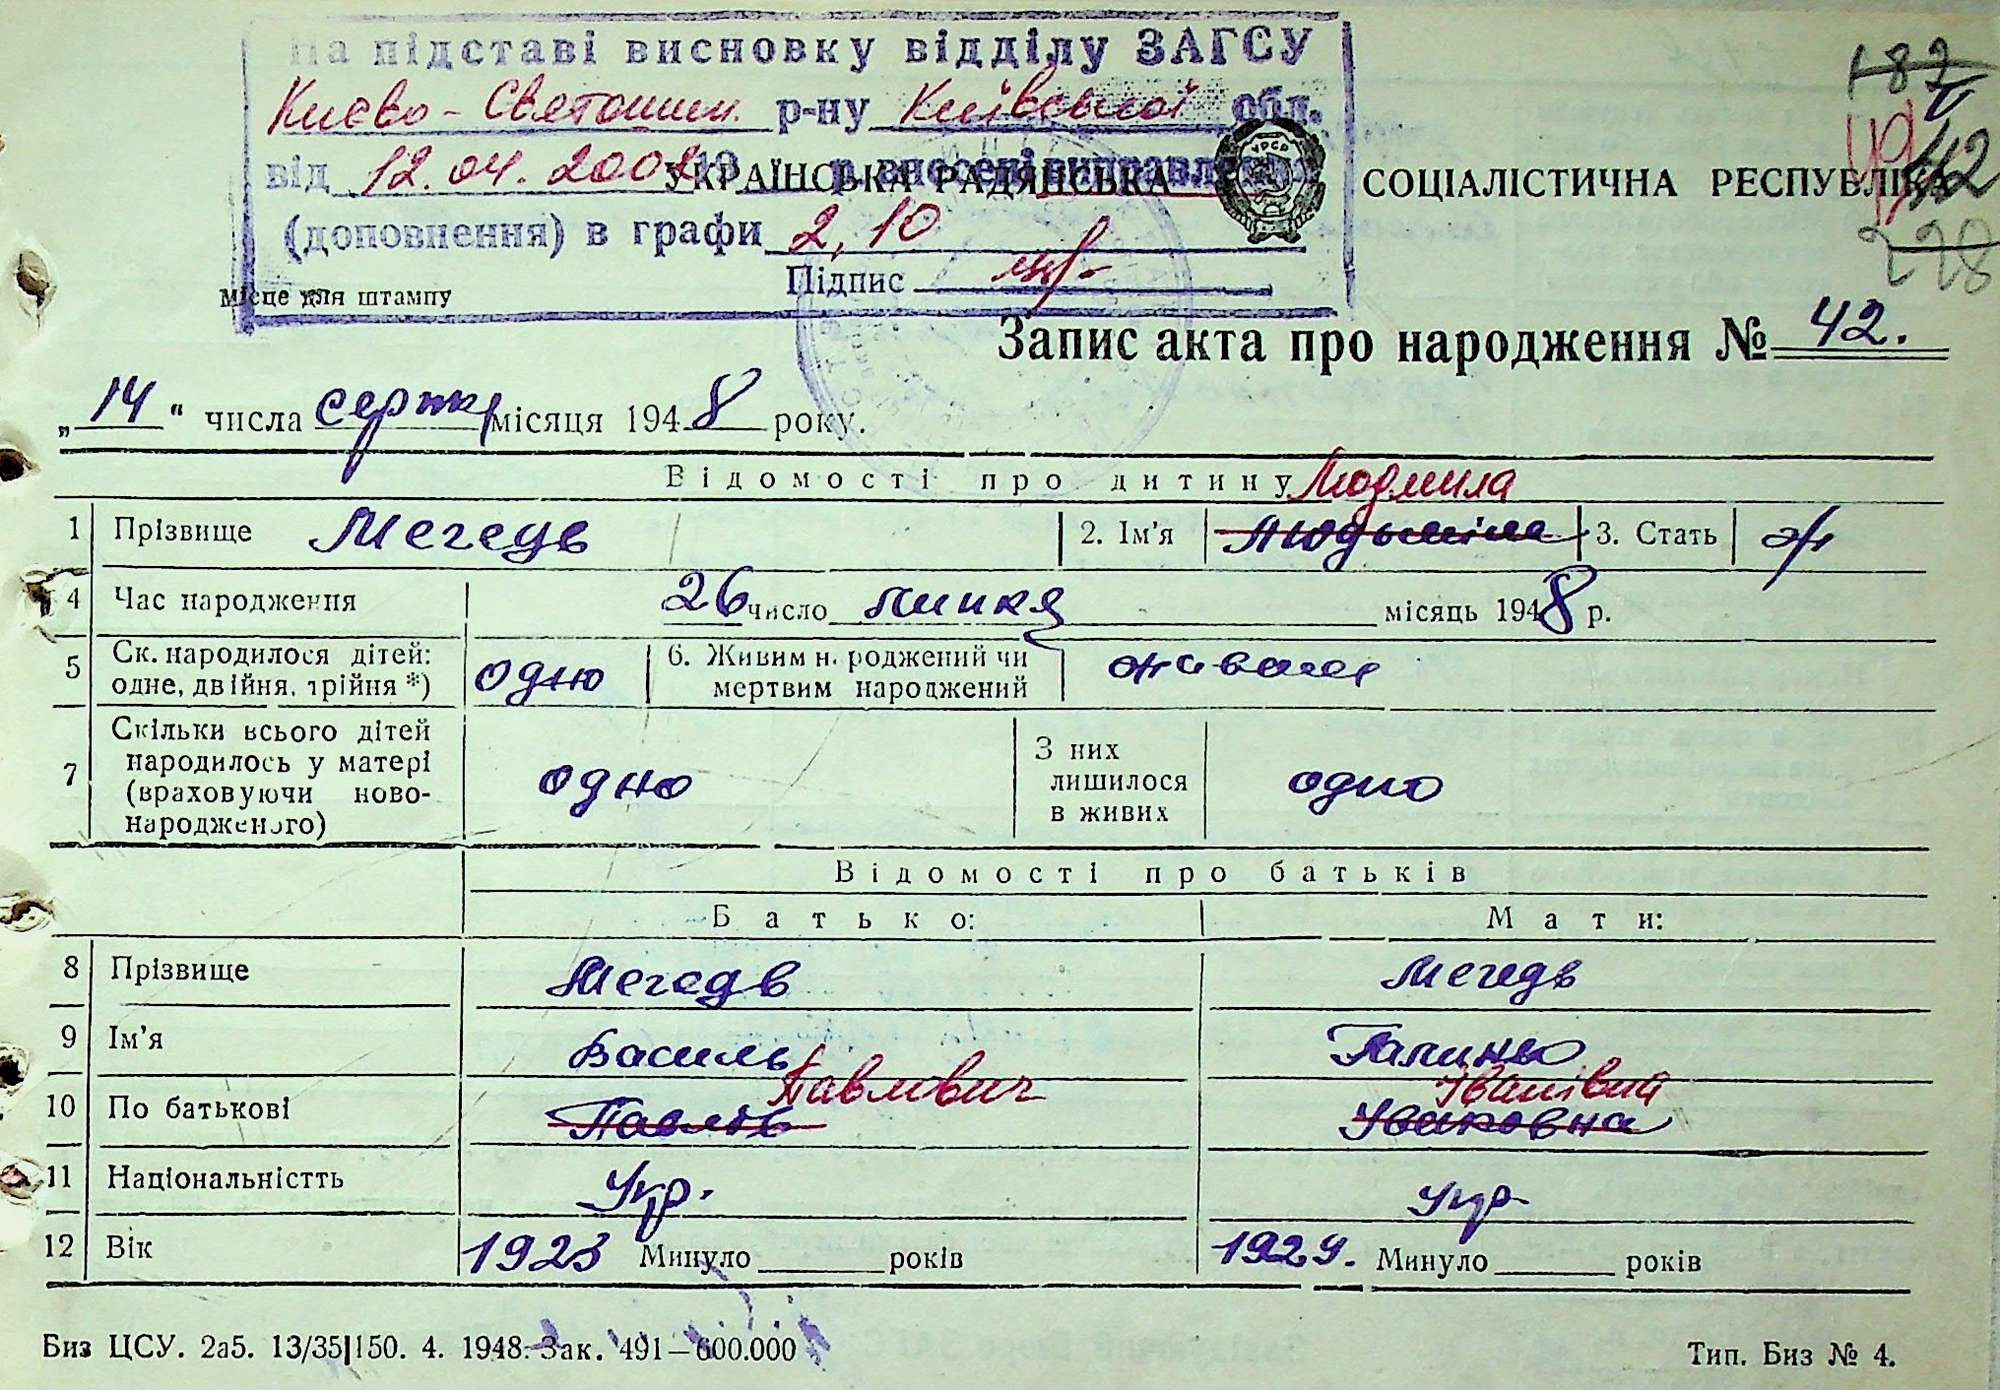 На підставі висновку відділу ЗАГСУ
Києво-Святошин. р-ну Київської обл.
від 12.04.2002 19 р. внесені виправлення
УКРАЇНСЬКА РАДЯНСЬКА СОЦІАЛІСТИЧНА РЕСПУБЛІКА
УРСР
(доповнення) в графи 2, 10
Підпис
Місце для штампу
187
42
228
Запис акта про народження № 42.
„14“ числа серпня місяця 1948 року.
Відомості про дитину Людмила
1 Прізвище Мегедь 2. Ім'я Людьміла 3. Стать ж
4 Час народження 26 число липня місяць 1948 р.
5 Ск. народилося дітей: одне, двійня, трійня *) одно 6. Живим н.роджений чи мертвим народжений живим
7 Скільки всього дітей народилось у матері (враховуючи ново-народженого) одно З них лишилося в живих одно
Відомості про батьків
Батько: Мати:
8 Прізвище Мегедь Мегедь
9 Ім'я Василь Галина
Павлович Іванівна
10 По батькові Павлов Ивановна
11 Національністть Укр. Укр.
12 Вік 1923 Минуло ______ років 1924. Минуло ______ років
Биз ЦСУ. 2а5. 13/35|150. 4. 1948. Зак. 491—600.000 Тип. Биз № 4.